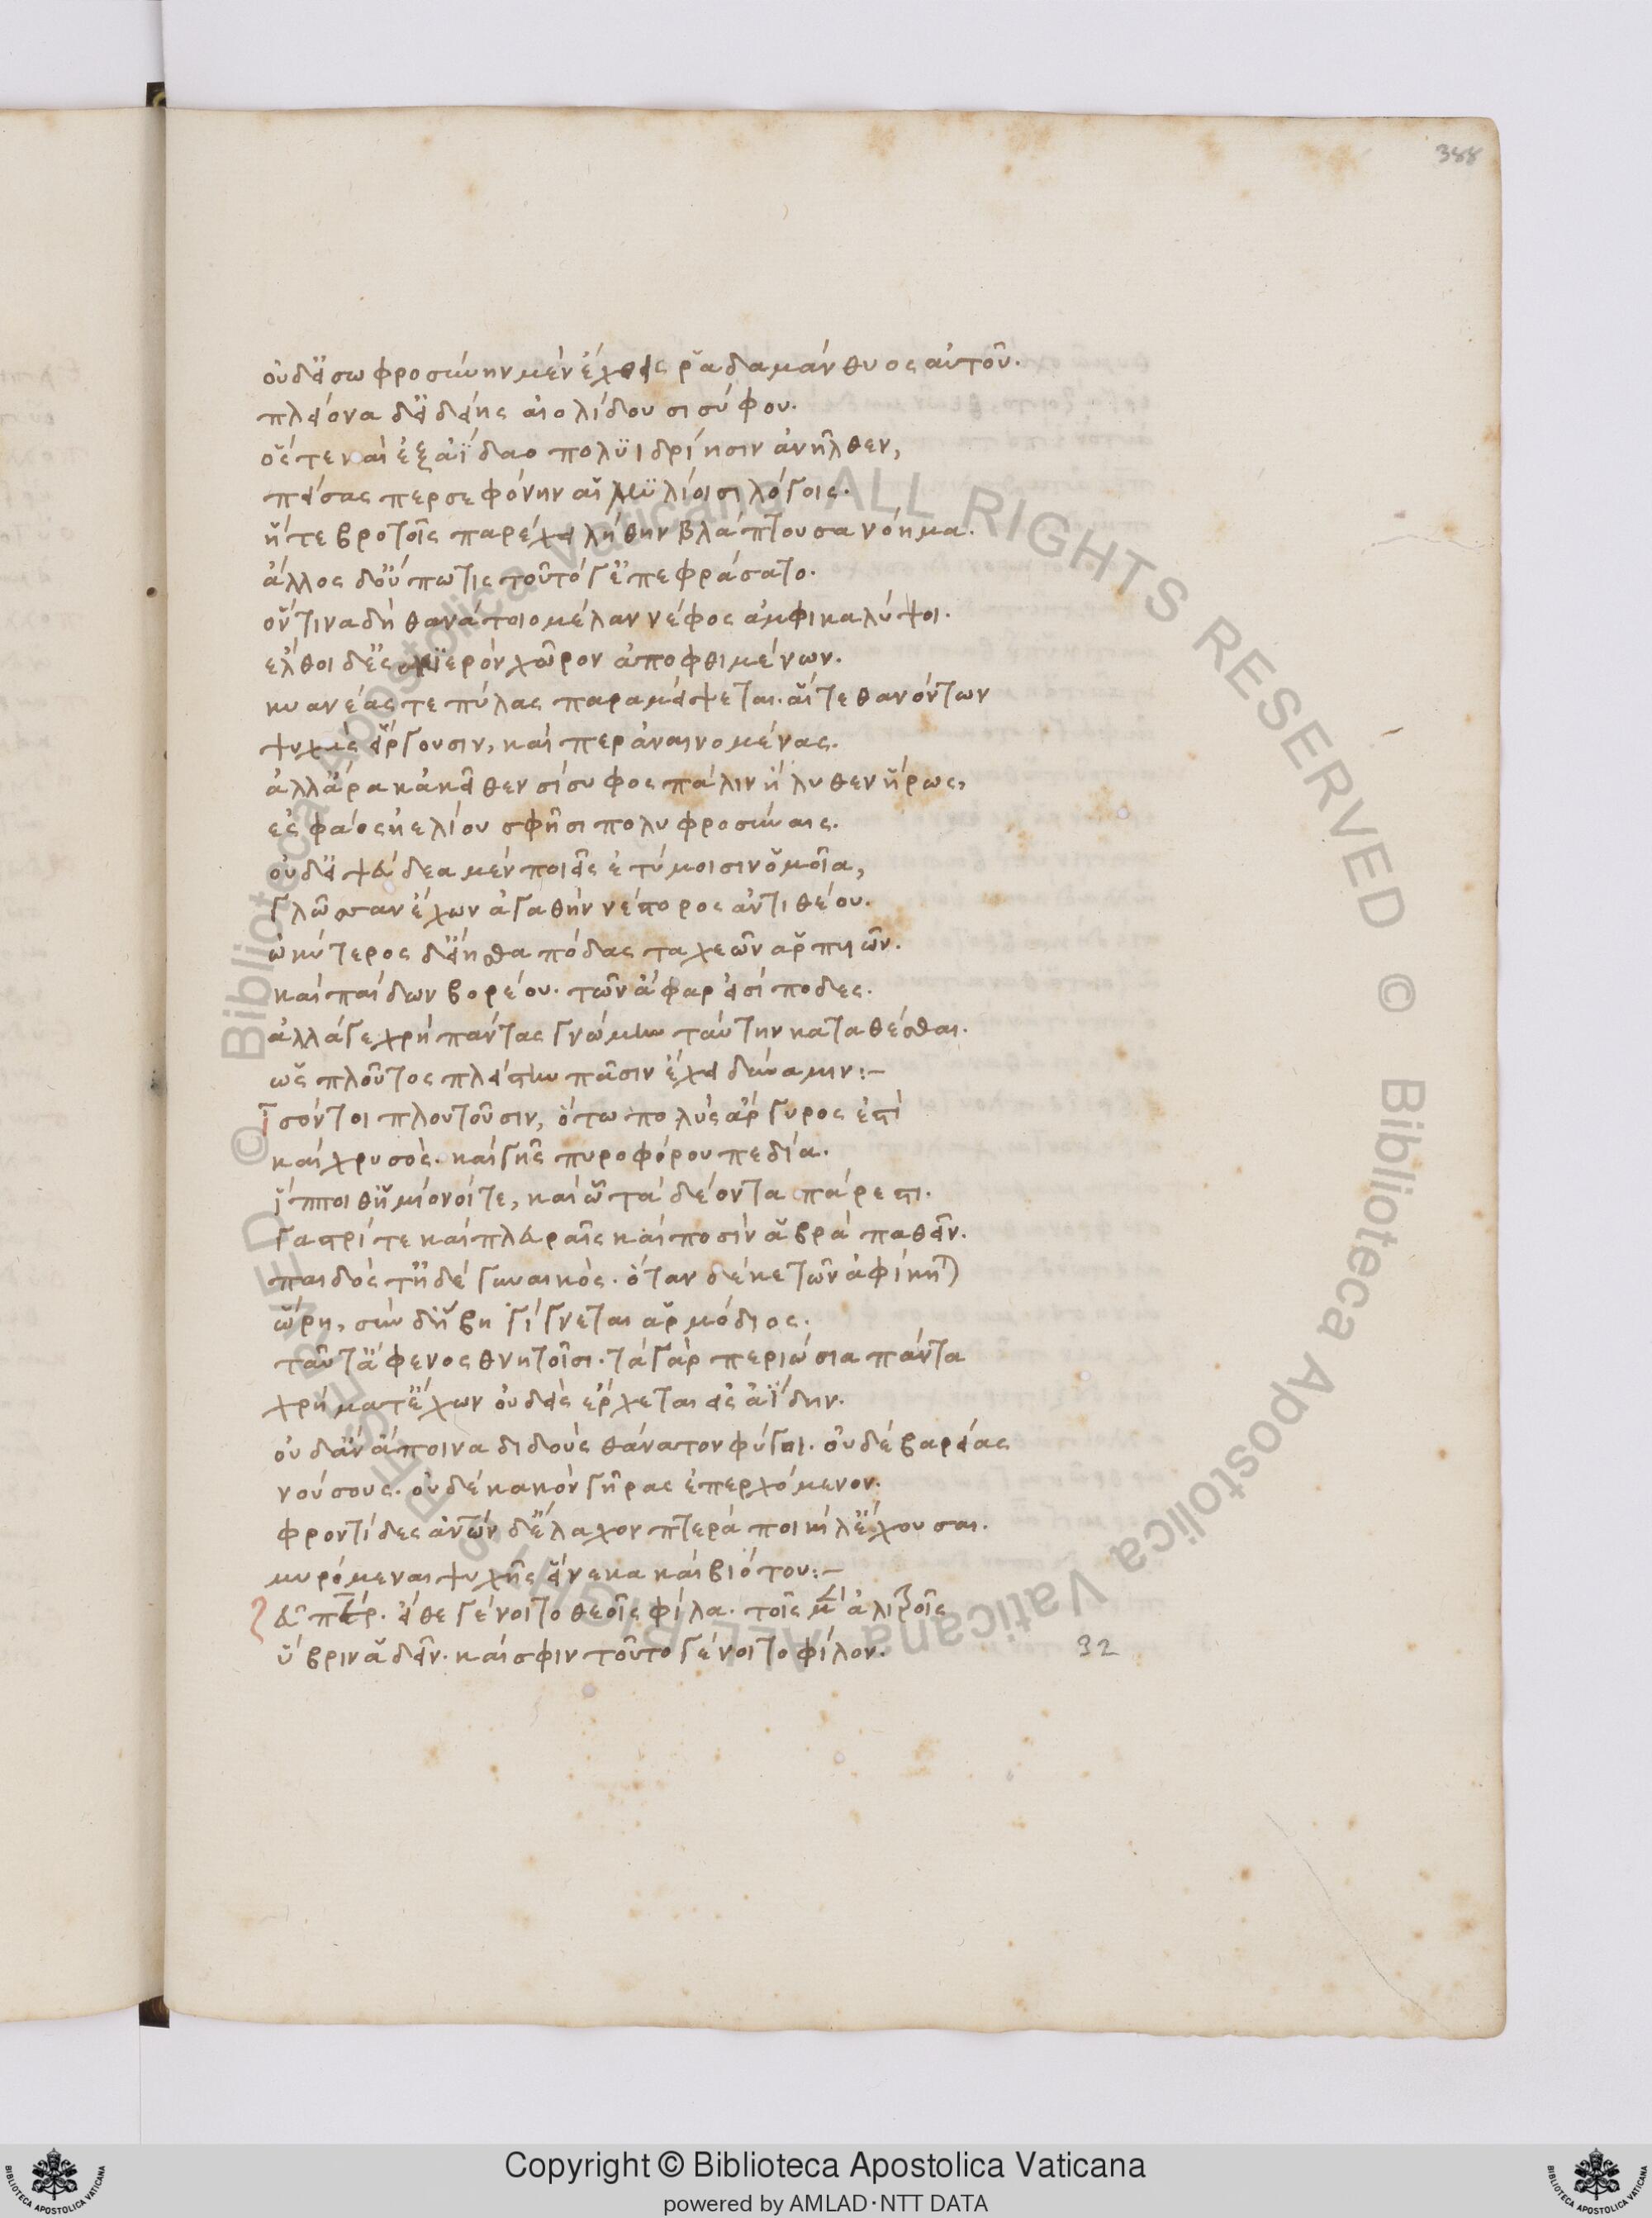 388
οὐδ' εἰ σωφροσύνην μὲν ἔχεις ῥαδαμάνθυος αὐτοῦ.
πλείονα δ' εἰδείης αἰολίδου σισύφου.
ὅς τε καὶ ἐξ ἀΐδαο πολυϊδρίησιν ἀνῆλθεν,
πείσας περσεφόνην αἱμυλίοισι λόγοις.
ἥτε βροτοῖς παρέχει λήθην βλάπτουσα νόημα.
ἄλλος δ' οὔπω τις τοῦτό γ' ἐπεφράσατο.
ὅντινα δὴ θανάτοιο μέλαν νέφος ἀμφικαλύψοι.
ἔλθοι δ' ἐς σκιερὸν χῶρον ἀποφθιμένων.
κυανέας τε πύλας παραμείψεται. αἵτε θανόντων
ψυχὰς εἴργουσιν, καίπερ ἀναινομένας.
ἀλλ' ἄρα κἀκεῖθεν σίσυφος πάλιν ἤλυθεν ἥρως,
ἐς φάος ἠελίου σφῇσι πολυφροσύναις.
οὐδ' εἰ ψεύδεα μὲν ποιεῖς ἐτύμοισιν ὁμοῖα,
γλῶσσαν ἔχων ἀγαθὴν νέστορος ἀντιθέου.
ὠκύτερος δ' εἴησθα πόδας ταχεῶν ἁρπυιῶν.
καὶ παίδων βορέου. τῶν ἄφαρ εἰσὶ πόδες.
ἀλλά γε χρὴ πάντας γνώμην ταύτην καταθέσθαι.
ὡς πλοῦτος πλείστην πᾶσιν ἔχει δύναμιν:-
ἶσόν τοι πλουτοῦσιν, ὅτω πολὺς ἄργυρος ἐστὶ
καὶ χρυσὸς. καὶ γῆς πυροφόρου πεδία.
ἵπποι θ' ἡμίονοί τε, καὶ ᾧ τὰ δέοντα πάρεστι.
γαστρί τε καὶ πλευραῖς καὶ ποσὶν ἁβρὰ παθεῖν.
παιδός τ' ἠδὲ γυναικὸς. ὅταν δέ κε τῶν ἀφίκηται
ὥρη, σὺν δ' ἥβη γίγνεται ἁρμόδιος.
ταῦτ' ἄφενος θνητοῖσι. τὰ γὰρ περιώσια πάντα
χρήματ' ἔχων οὐδεὶς ἔρχεται εἰς ἀΐδην.
οὐδ' ἂν ἄποινα διδοὺς θάνατον φύγοι. οὐδὲ βαρείας
νούσους. οὐδὲ κακὸν γῆρας ἐπερχόμενον.
φροντίδες ἀνθρώπων δ' ἔλαχον πτερὰ ποικίλ' ἔχουσαι.
μυρόμεναι ψυχῆς εἵνεκα καὶ βιότου:-
ζεῦ πάτερ. εἴθε γένοιτο θεοῖς φίλα. τοῖς μὲν ἀλιτροῖς
ὕβριν ἁδεῖν. καί σφιν τοῦτο γένοιτο φίλον.
32
© Biblioteca Apostolica Vaticana ALL RIGHTS RESERVED © Biblioteca Apostolica Vaticana ALL RIGHTS RESERVED
Copyright © Biblioteca Apostolica Vaticana
powered by AMLAD・NTT DATA
BIBLIOTECA APOSTOLICA VATICANA
BIBLIOTECA APOSTOLICA VATICANA